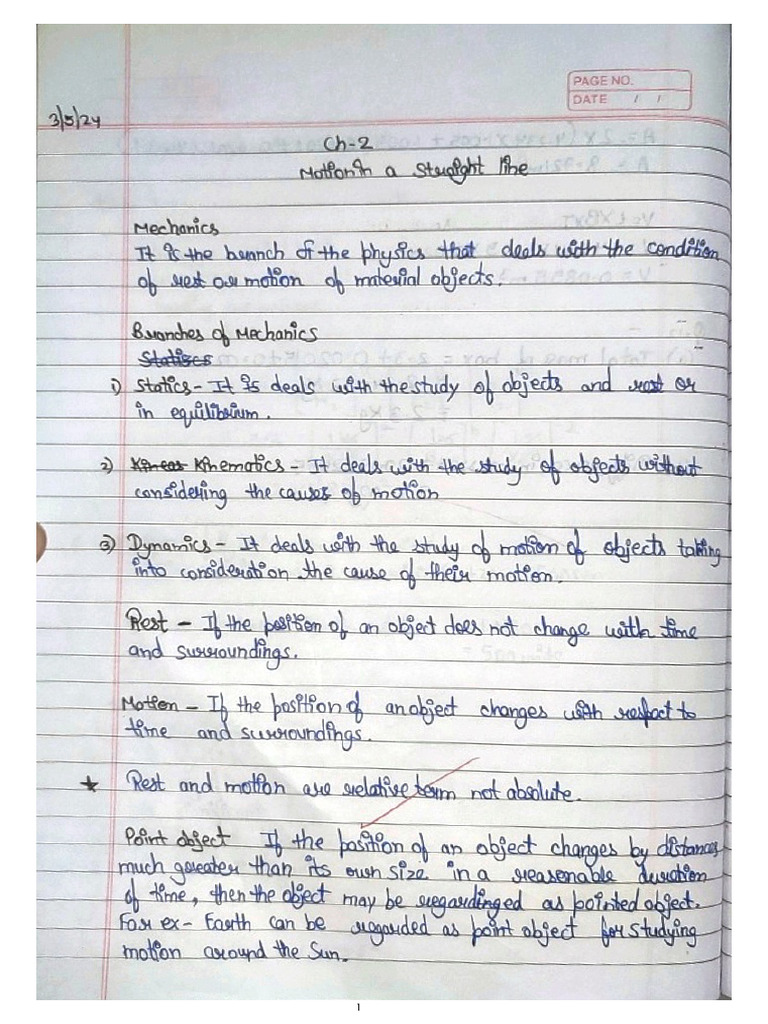 PAGE NO.
DATE / /
3/5/24
Ch-2
Motion in a Straight line
Mechanics
It is the branch of the physics that deals with the condition
of rest or motion of material objects.
Branches of Mechanics
Statises
1) Statics - It is deals with the study of objects and rest or
in equilibrium.
2) Kinematics - It deals with the study of objects without
considering the causes of motion
3) Dynamics - It deals with the study of motion of objects taking
into consideration the cause of their motion.
Rest - If the position of an object does not change with time
and surroundings.
Motion - If the position of an object changes with respect to
time and surroundings.
★ Rest and motion are relative term not absolute.
Point object If the position of an object changes by distances
much greater than its own size in a reasonable duration
of time, then the object may be regardinged as pointed object.
For ex- Earth can be regarded as point object for studying
motion around the Sun.
1